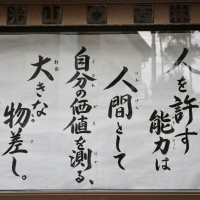 人を許す
能力は
人間として
自分の価値を測る、
大きな
物差し。